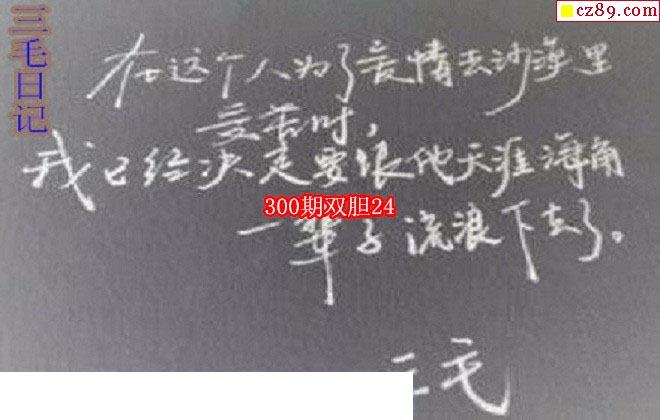 cz89.com
三毛日记
在这个人为了爱情去沙漠里
受苦时，
我已经决定要跟他天涯海角
300期双胆24
一辈子流浪下去了。
三毛